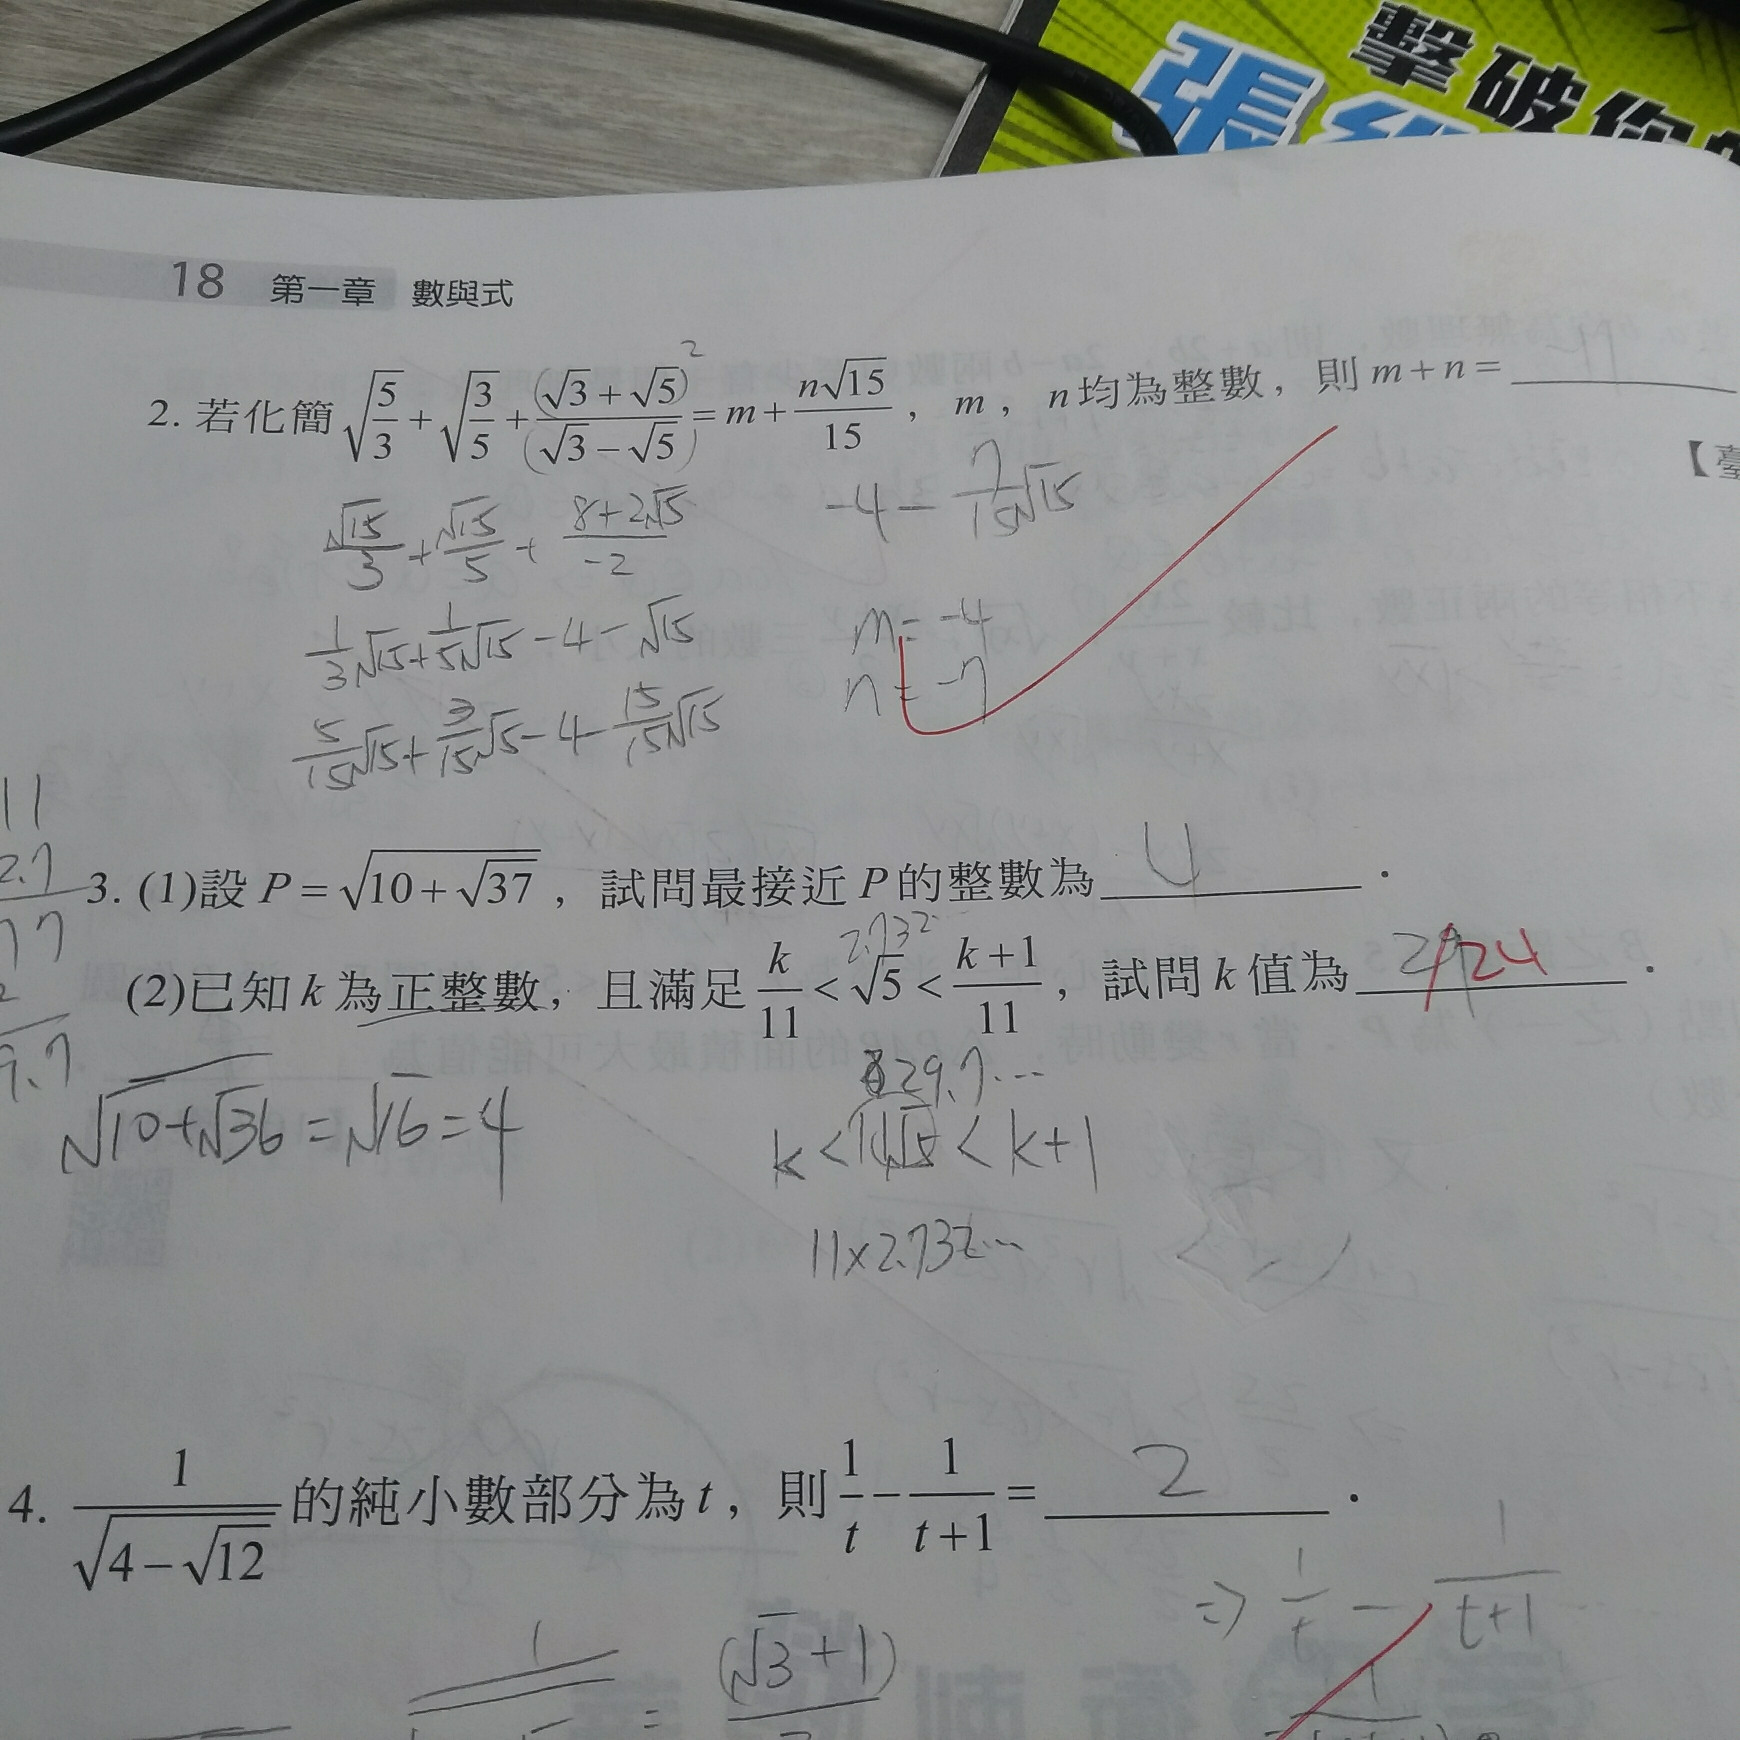 擊破你
張
18 第一章 數與式
2. 若化簡 √(5/3) + √(3/5) + (√3+√5)²/(√3−√5) = m + n√15/15 , m , n均為整數 , 則 m+n = ____
【臺
√15/3 + √15/5 + (8+2√15)/-2
-4 - 7/15√15
1/3√15 + 1/5√15 - 4 - √15
m = -4
n = -7
5/15√15 + 3/15√15 - 4 - 15/15√15
11
2.7
77
9.7
3. (1)設 P = √(10+√37) , 試問最接近 P 的整數為 4 .
2.732
(2)已知 k 為正整數 , 且滿足 k/11 < √5 < (k+1)/11 , 試問 k 值為 29 24 .
29.7...
√(10+√36) = √16 = 4
k < 11√5 < k+1
11×2.732...
4. 1/√(4−√12) 的純小數部分為 t , 則 1/t − 1/(t+1) = 2 .
⇒ 1/t - 1/(t+1)
1
= (√3+1)
1